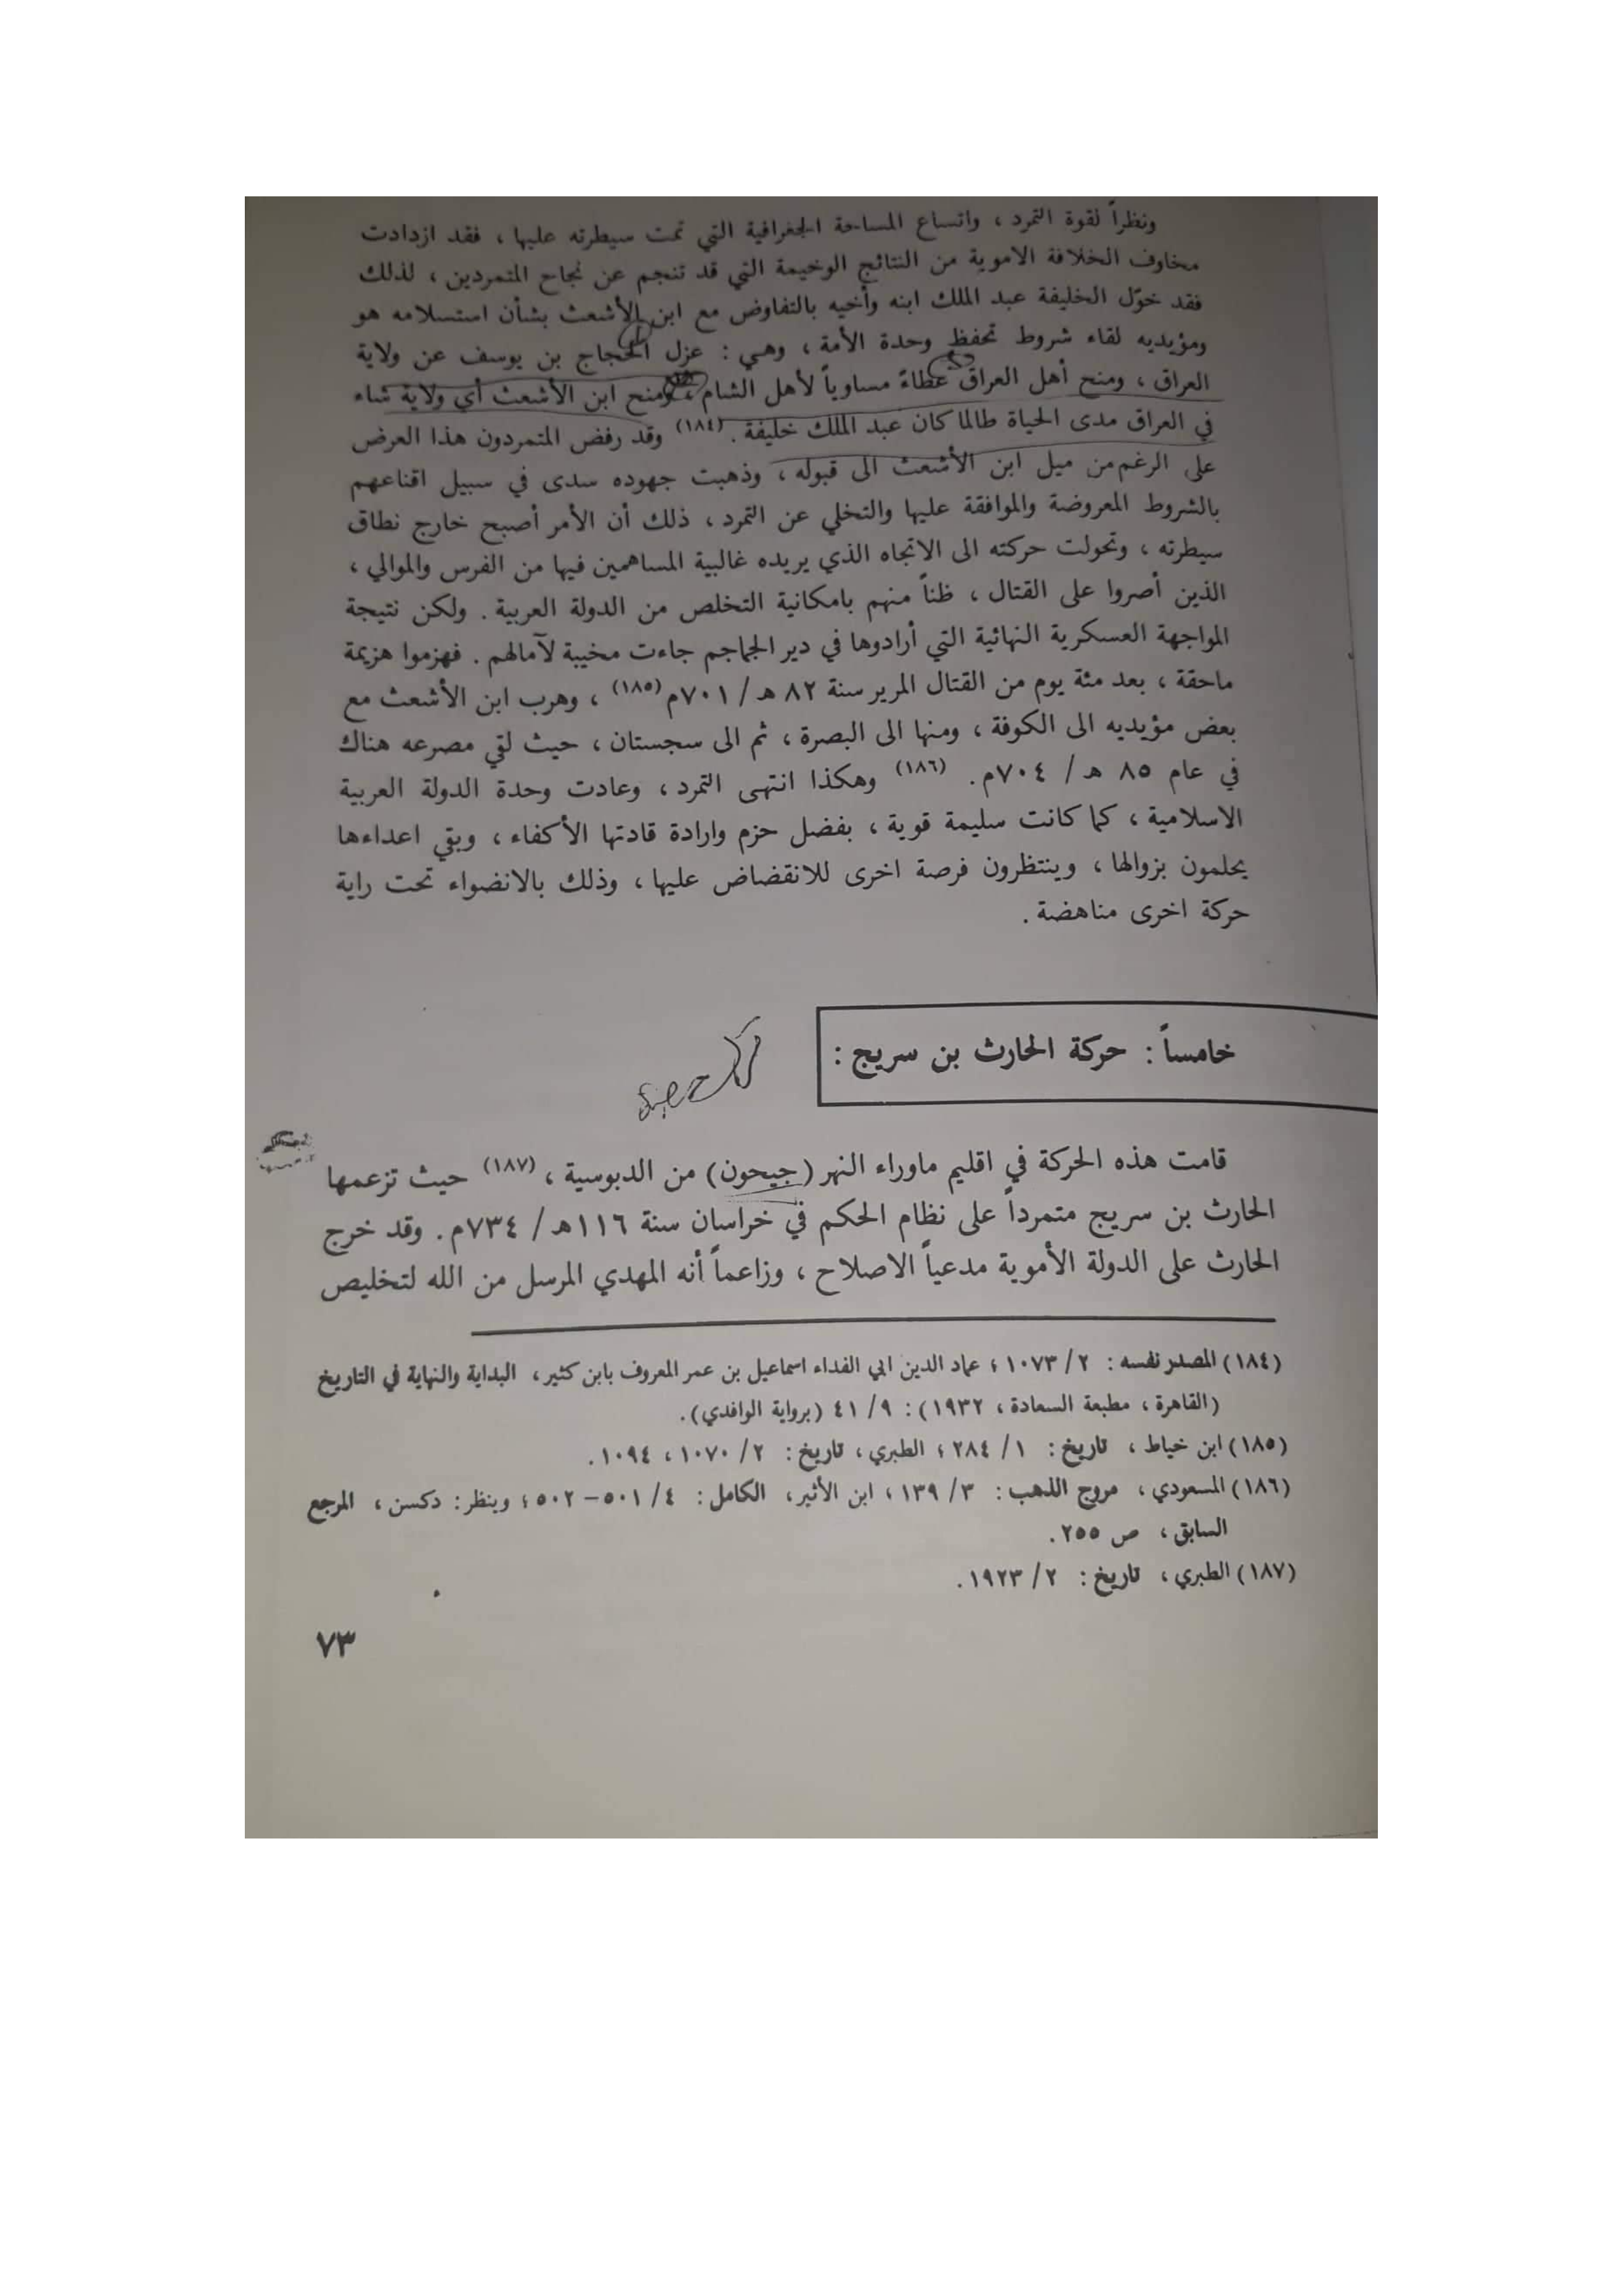 ونظراً لقوة التمرد ، واتساع المساحة الجغرافية التي تمت سيطرته عليها ، فقد ازدادت
مخاوف الخلافة الاموية من النتائج الوخيمة التي قد تنجم عن نجاح المتمردين ، لذلك
فقد خوّل الخليفة عبد الملك ابنه وأخيه بالتفاوض مع ابن الأشعث بشأن استسلامه هو
ومؤيديه لقاء شروط تحفظ وحدة الأمة ، وهي : عزل الحجاج بن يوسف عن ولاية
العراق ، ومنح أهل العراق عطاءً مساوياً لأهل الشام ، ومنح ابن الأشعث أي ولاية شاء
في العراق مدى الحياة طالما كان عبد الملك خليفة . (١٨٤) وقد رفض المتمردون هذا العرض
على الرغم من ميل ابن الأشعث الى قبوله ، وذهبت جهوده سدى في سبيل اقناعهم
بالشروط المعروضة والموافقة عليها والتخلي عن التمرد ، ذلك أن الأمر أصبح خارج نطاق
سيطرته ، وتحولت حركته الى الاتجاه الذي يريده غالبية المساهمين فيها من الفرس والموالي ،
الذين أصروا على القتال ، ظناً منهم بامكانية التخلص من الدولة العربية . ولكن نتيجة
المواجهة العسكرية النهائية التي أرادوها في دير الجماجم جاءت مخيبة لآمالهم . فهزموا هزيمة
ماحقة ، بعد مئة يوم من القتال المرير سنة ٨٢ هـ / ٧٠١م (١٨٥) ، وهرب ابن الأشعث مع
بعض مؤيديه الى الكوفة ، ومنها الى البصرة ، ثم الى سجستان ، حيث لقي مصرعه هناك
في عام ٨٥ هـ / ٧٠٤م . (١٨٦) وهكذا انتهى التمرد ، وعادت وحدة الدولة العربية
الاسلامية ، كما كانت سليمة قوية ، بفضل حزم وارادة قادتها الأكفاء ، وبقي اعداءها
يحلمون بزوالها ، وينتظرون فرصة اخرى للانقضاض عليها ، وذلك بالانضواء تحت راية
حركة اخرى مناهضة .
خامساً : حركة الحارث بن سريج :
قامت هذه الحركة في اقليم ماوراء النهر (جيحون) من الدبوسية ، (١٨٧) حيث تزعمها
الحارث بن سريج متمرداً على نظام الحكم في خراسان سنة ١١٦هـ / ٧٣٤م . وقد خرج
الحارث على الدولة الأموية مدعياً الاصلاح ، وزاعماً أنه المهدي المرسل من الله لتخليص
(١٨٤) المصدر نفسه : ٢ / ١٠٧٣ ؛ عماد الدين ابي الفداء اسماعيل بن عمر المعروف بابن كثير ، البداية والنهاية في التاريخ
(القاهرة ، مطبعة السعادة ، ١٩٣٢) : ٩ / ٤١ (برواية الواقدي) .
(١٨٥) ابن خياط ، تاريخ : ١ / ٢٨٤ ؛ الطبري ، تاريخ : ٢ / ١٠٧٠ ، ١٠٩٤ .
(١٨٦) المسعودي ، مروج الذهب : ٣ / ١٣٩ ، ابن الأثير ، الكامل : ٤ / ٥٠١ – ٥٠٢ ؛ وينظر : دكسن ، المرجع
السابق ، ص ٢٥٥ .
(١٨٧) الطبري ، تاريخ : ٢ / ١٩٢٣ .
٧٣